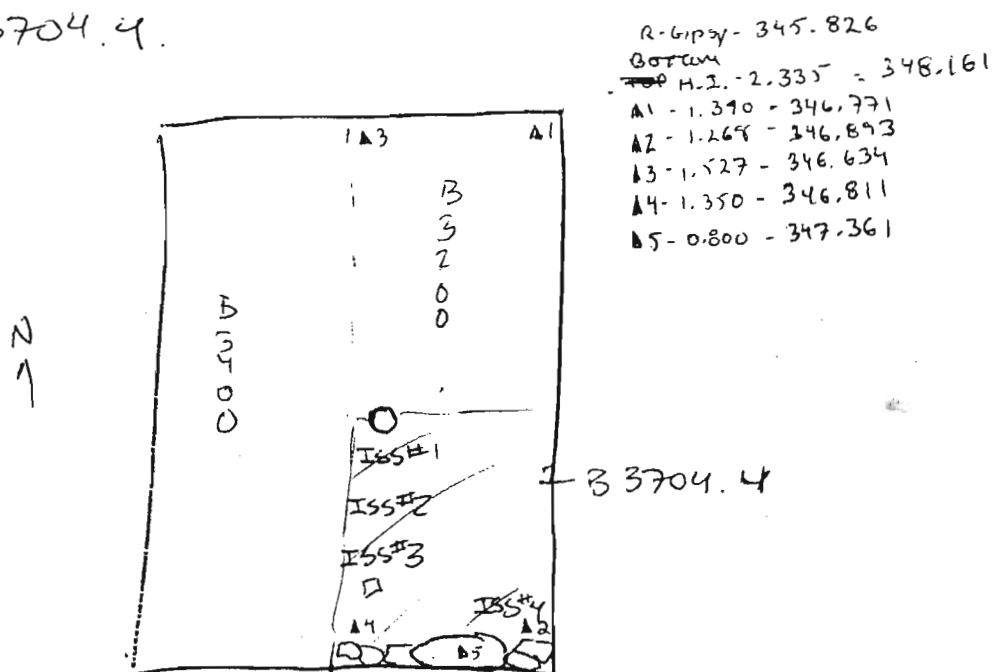 3704.4.
R-Gipsy - 345.826
Bottom
H.I. - 2.335 = 348.161
▲1 - 1.390 - 346.771
▲2 - 1.268 - 346.893
▲3 - 1.527 - 346.634
▲4 - 1.350 - 346.811
▲5 - 0.800 - 347.361
1 ▲3
▲1
B
3
2
0
0
B
3
4
0
0
N
ISS#1
B 3704.4
ISS#2
ISS#3
ISS#4
▲4
▲2
▲5